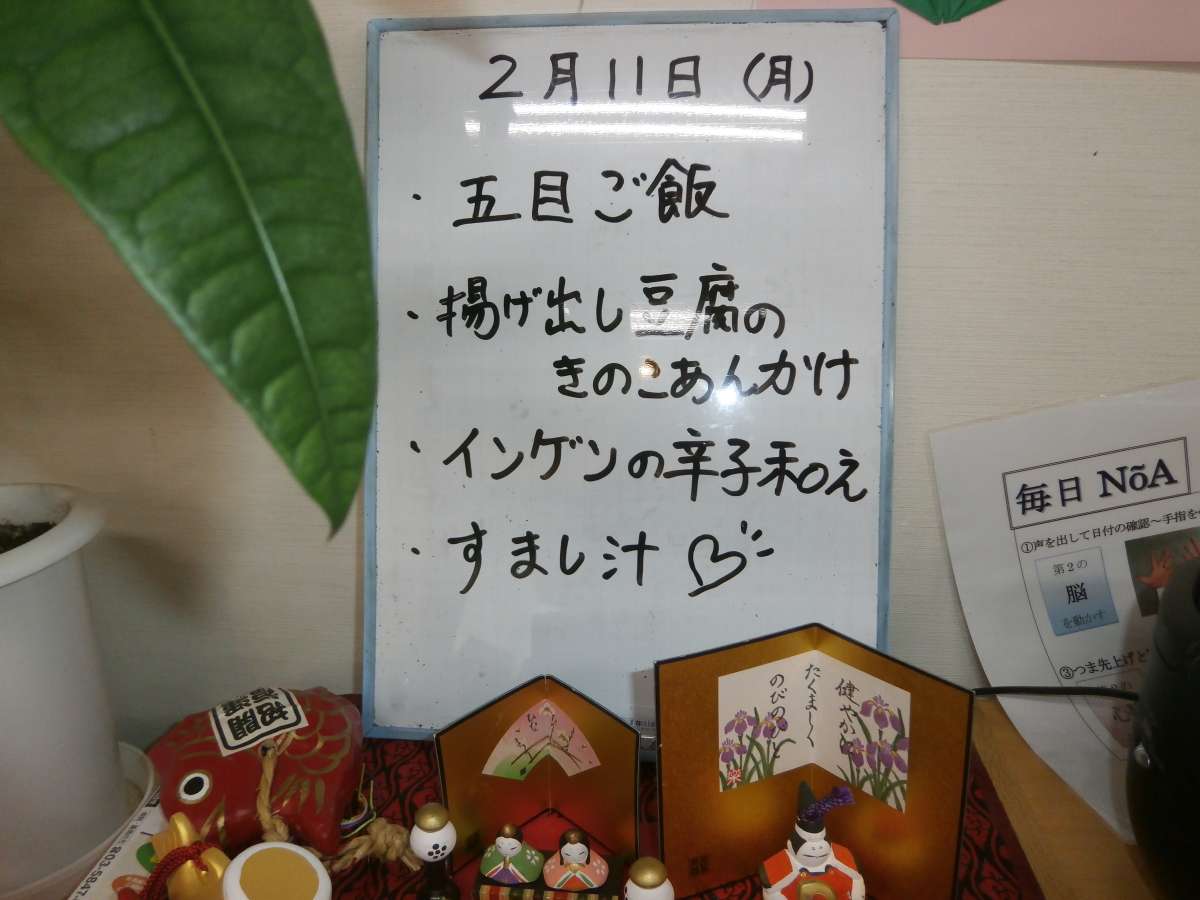 2月11日(月)
・五目ご飯
・揚げ出し豆腐の
きのこあんかけ
・インゲンの辛子和え
・すまし汁
毎日 NõA
①声を出して日付の確認～手指を
第2の
脳
を動かす
③つま先上げど
健やかに
たくましく
のびのびと
招開